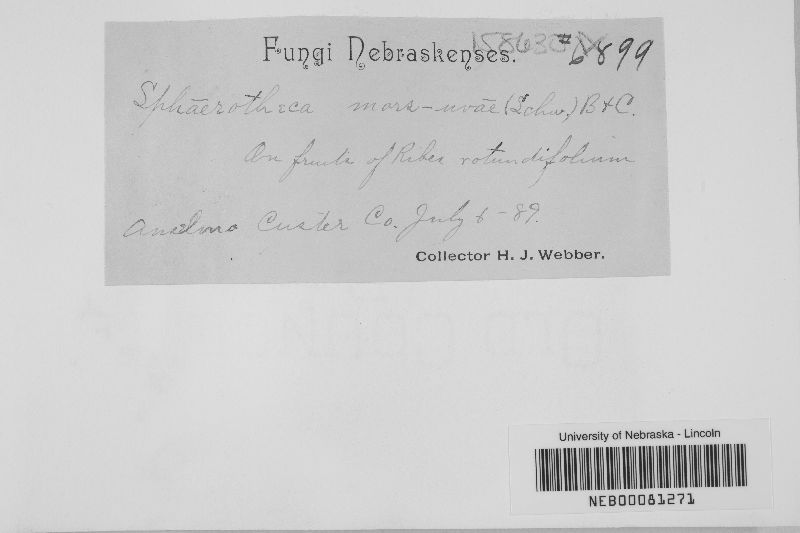 Fungi Nebraskenses. #6899
Sphaerotheca mors-uvae (Schw.) B & C.
On fruits of Ribes rotundifolium
Anselmo Custer Co. July 6 - 89.
Collector H. J. Webber.
University of Nebraska - Lincoln
NEB00081271